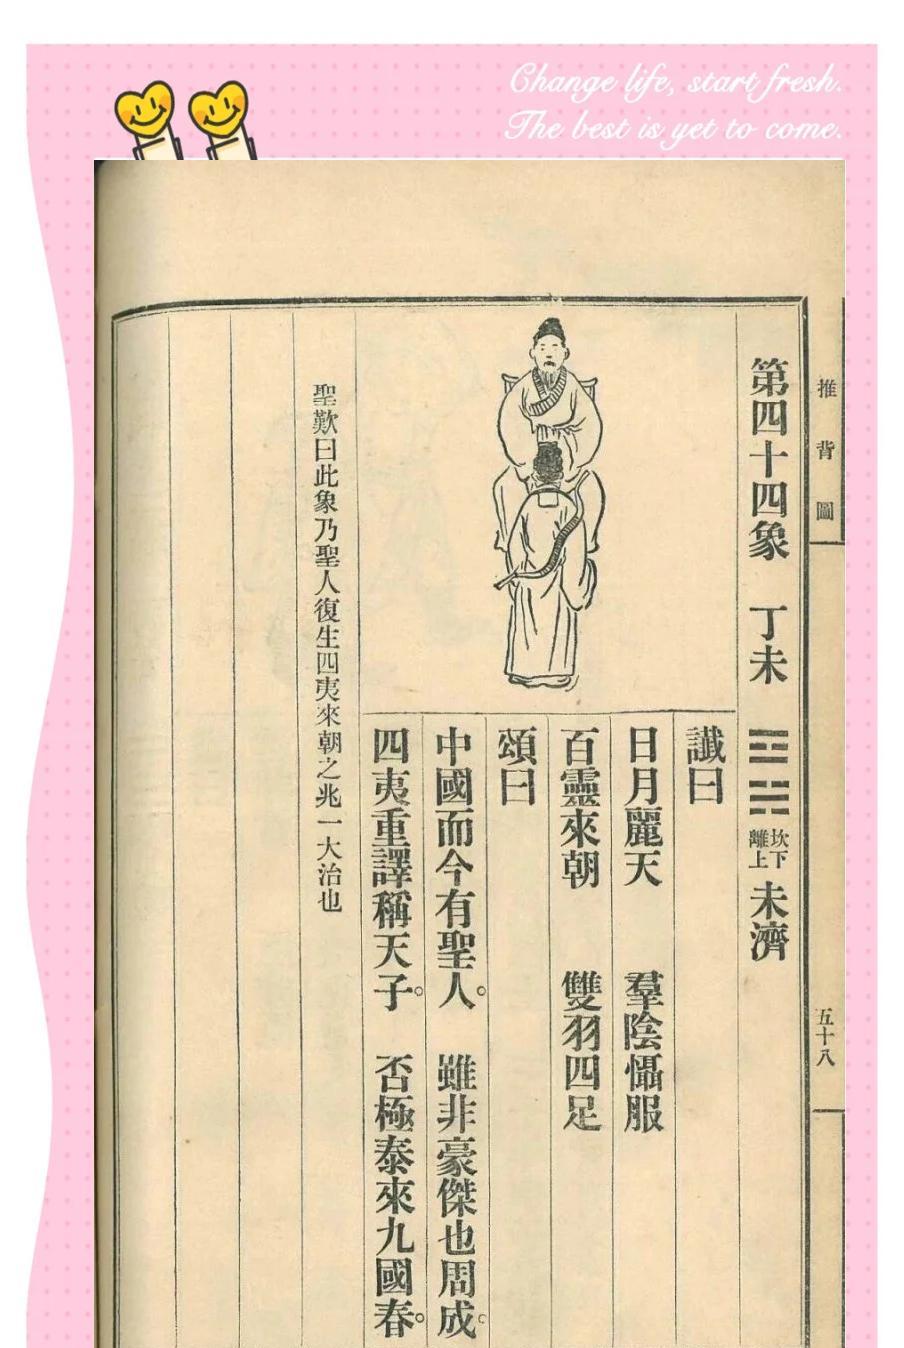 Change life, start fresh.
The best is yet to come.
推背圖
五十八
第四十四象 丁未 ䷿ 坎下離上 未濟
讖曰
日月麗天 羣陰懾服
百靈來朝 雙羽四足
頌曰
中國而今有聖人。 雖非豪傑也周成。
四夷重譯稱天子。 否極泰來九國春。
聖歎曰此象乃聖人復生四夷來朝之兆一大治也